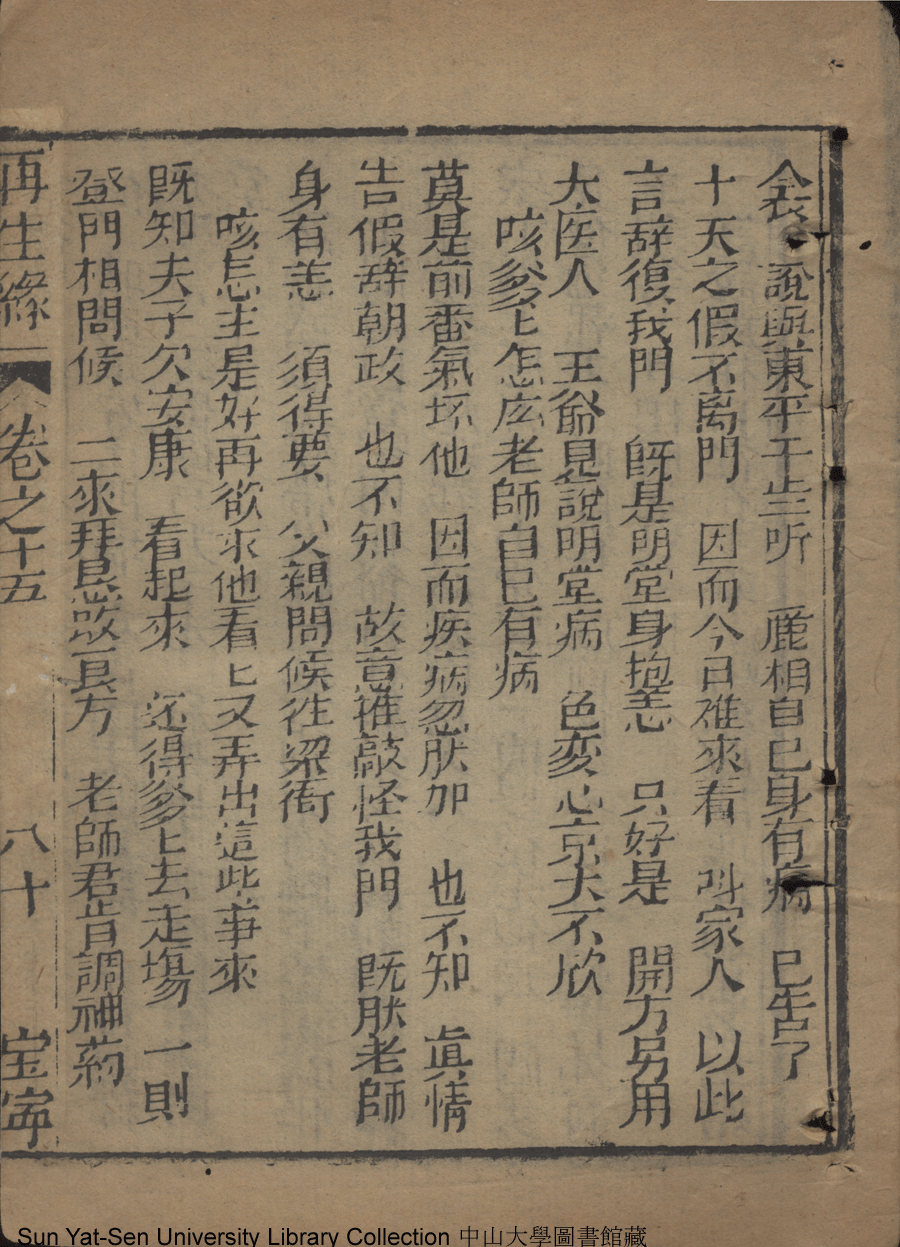 說與東平千歲听 酈相自已身有病 已告了
十天之假不离門 因而今日难來看 叫家人 以此
言辞復我門 既是明堂身抱恙 只好是 開方另用
大医人 王爺見說明堂病 色变心京大不欣
咳爹上怎庅老師自已有病
莫是前番氣坏他 因而疾病忽肰加 也不知 眞情
告假辞朝政 也不知 故意推敲怪我門 既肰老師
身有恙 須得要 父親問候徃梁衙
咳怎生是好再欲求他看上又弄出這些事來
既知夫子欠安康 看起來 还得爹上去走塲 一則
登門相問候 二來拜恳改一良方 老師君肯調神药
再生緣 卷之十五 八十 宝寕
Sun Yat-Sen University Library Collection 中山大學圖書館藏